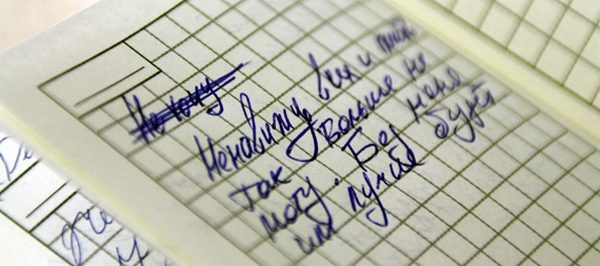 Не хочу
Ненавижу всех и
так больше не
могу. Без меня
им лучше будет